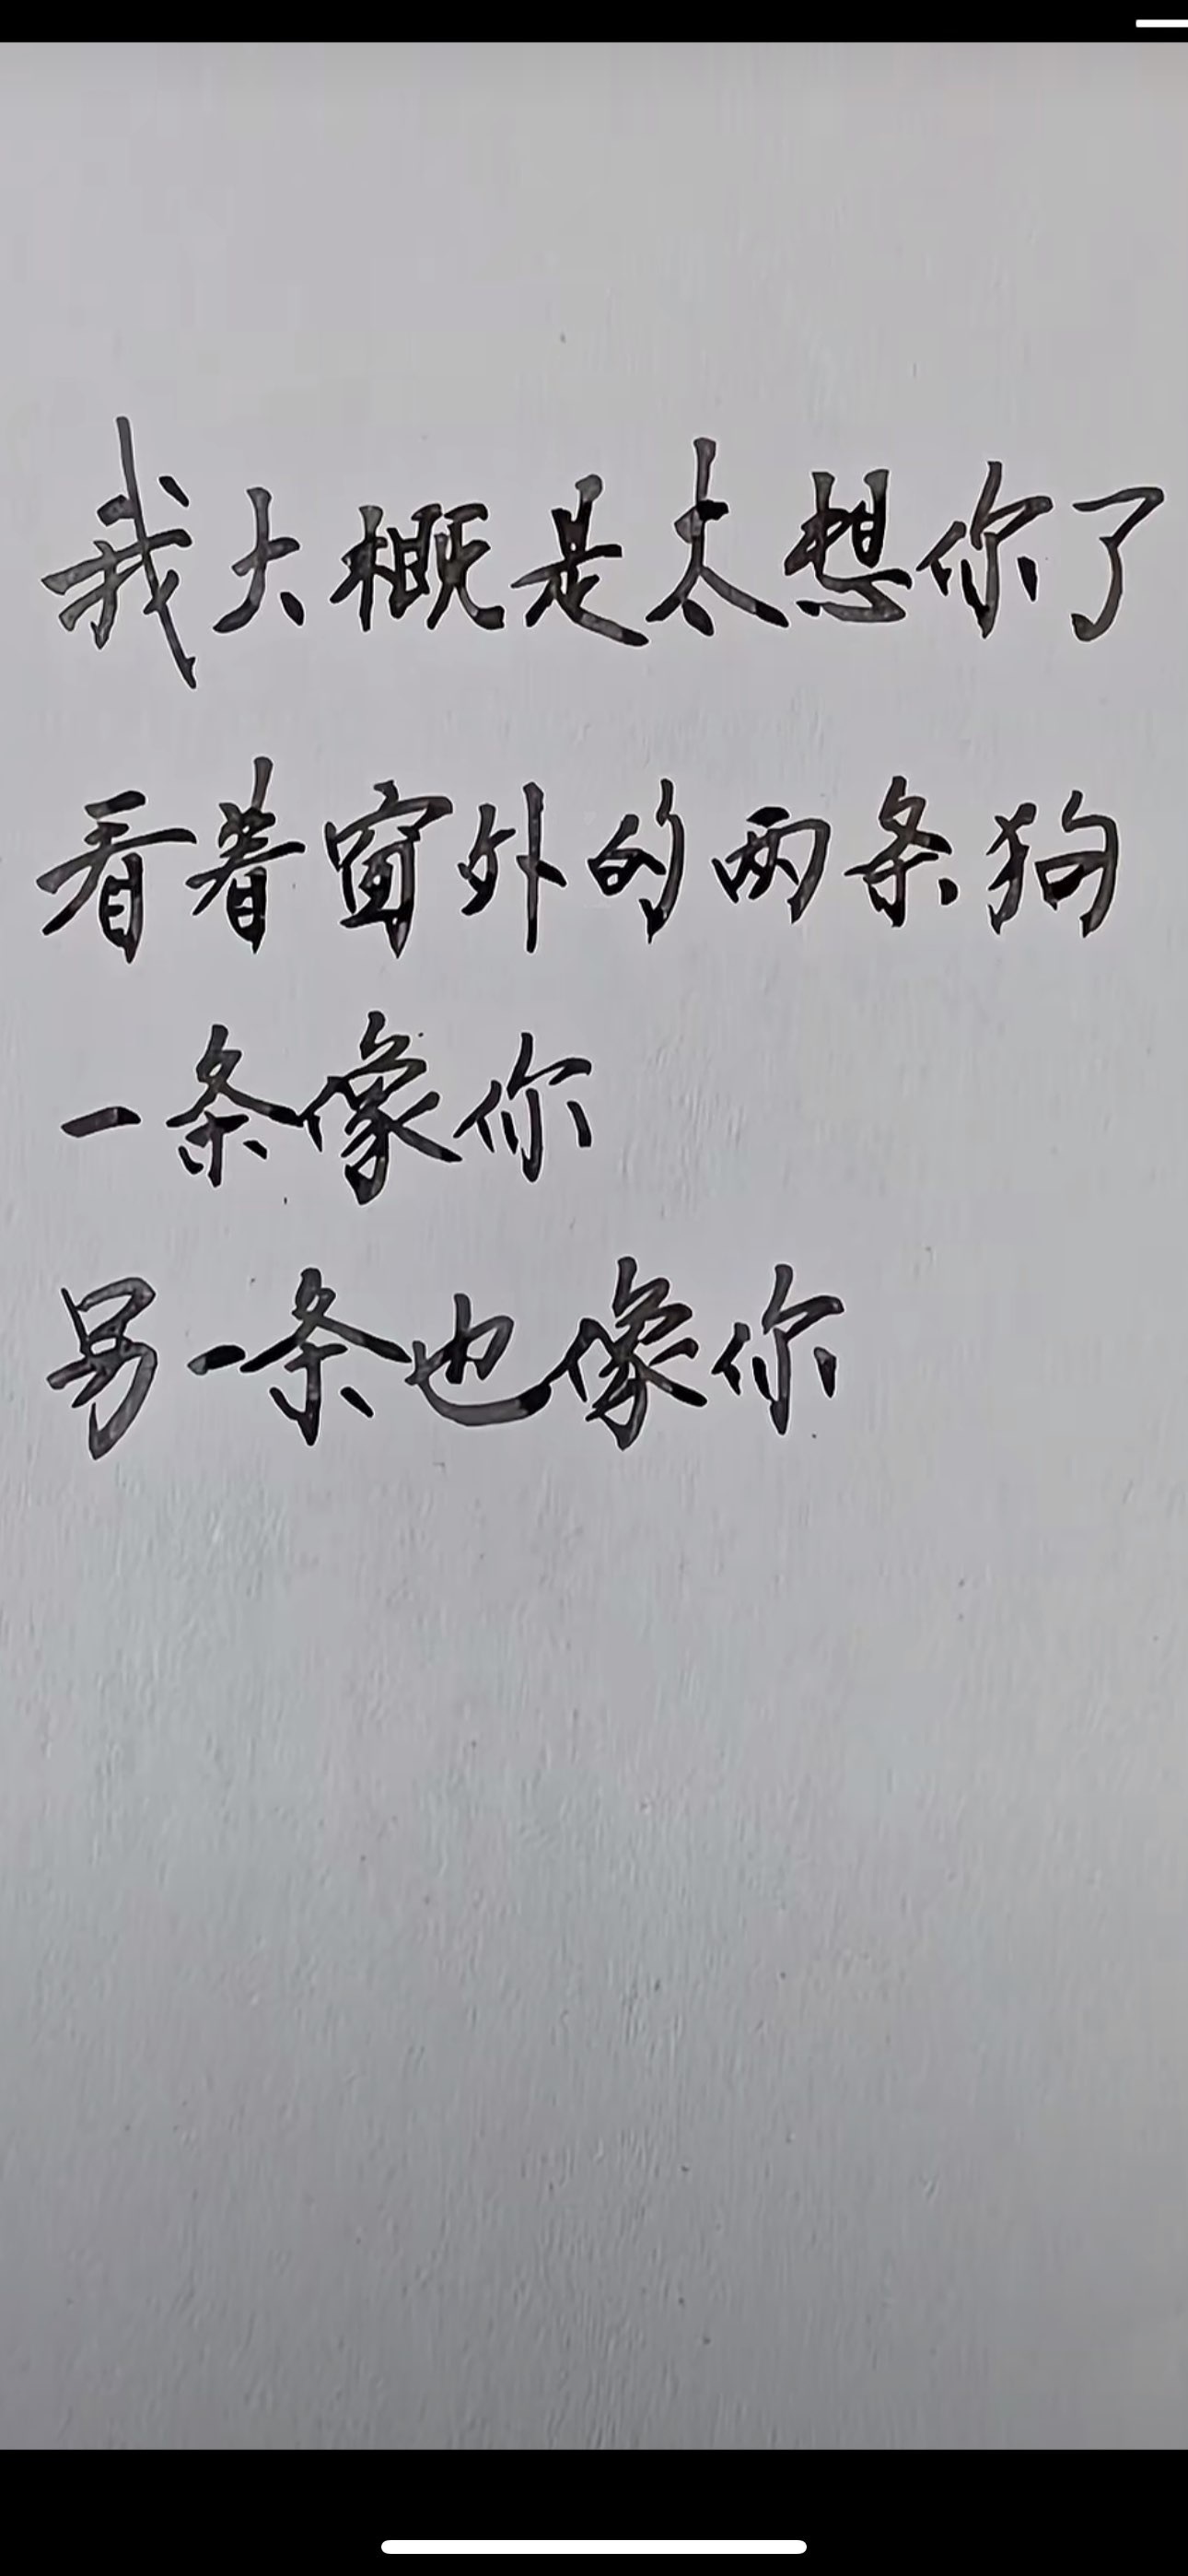 我大概是太想你了
看着窗外的两条狗
一条像你
另一条也像你